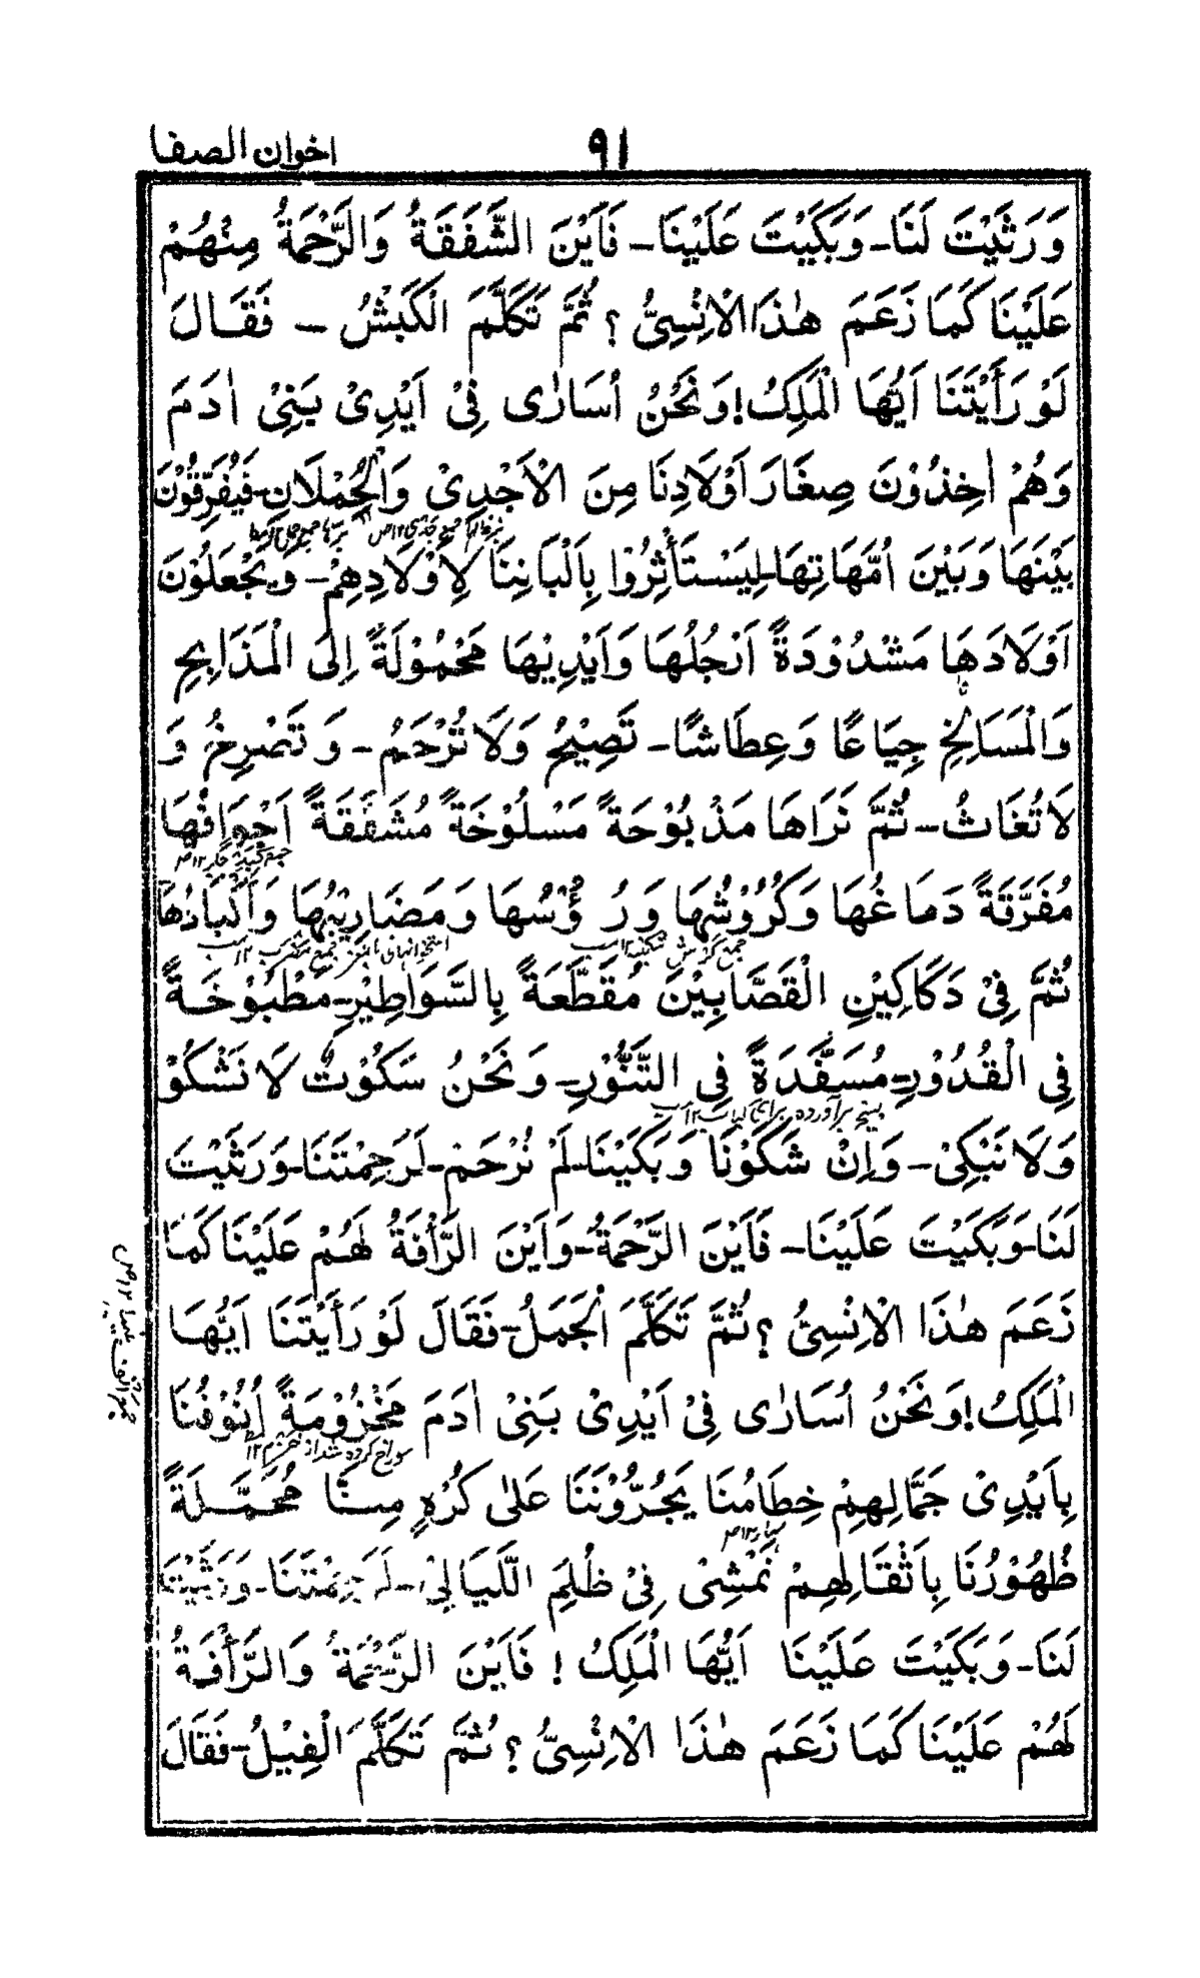 اخوان الصفا
٩١
وَرَثَيْتَ لَنَا۔ وَبَكَيْتَ عَلَيْنَا۔ فَاَيْنَ الشَّفَقَةُ وَالرَّحْمَةُ مِنْهُمْ
عَلَيْنَا كَمَا زَعَمَ هٰذَا الْاِنْسِيُّ؟ ثُمَّ تَكَلَّمَ الْكَبْشُ ۔ فَقَالَ
لَوْ رَأَيْتَنَا اَيُّهَا الْمَلِكُ! وَنَحْنُ اُسَارٰى فِيْ اَيْدِيْ بَنِيْ اٰدَمَ
وَهُمْ اٰخِذُوْنَ صِغَارَ اَوْلَادِنَا مِنَ الْاَجْدِيْ وَالْحُمْلَانِ۔ فَيُفَرِّقُوْنَ
بَيْنَهَا وَبَيْنَ اُمَّهَاتِهَا۔ لِيَسْتَأْثِرُوْا بِاَلْبَانِنَا لِاَوْلَادِهِمْ۔ وَيَجْعَلُوْنَ
اَوْلَادَهَا مَشْدُوْدَةً اَرْجُلُهَا وَاَيْدِيْهَا مَحْمُوْلَةً اِلَى الْمَذَابِحِ
وَالْمَسَالِخِ جِيَاعًا وَعِطَاشًا۔ تَصِيْحُ وَلَا تُرْحَمُ۔ وَتَصْرِخُ وَ
لَا تُغَاثُ۔ ثُمَّ نَرَاهَا مَذْبُوْحَةً مَسْلُوْخَةً مُشَقَّقَةً اَجْوَافُهَا
مُفَرَّقَةً دَمَاغُهَا وَكُرُوْشُهَا وَرُؤُسُهَا وَمَضَارِيْنُهَا وَاَكْبَادُهَا
ثُمَّ فِيْ دَكَاكِيْنِ الْقَصَّابِيْنَ مُقَطَّعَةً بِالسَّوَاطِيْرِ۔ مَطْبُوْخَةً
فِي الْقُدُوْرِ۔ مُسَفَّدَةً فِي التَّنُّوْرِ۔ وَنَحْنُ سَكُوْتٌ لَا نَشْكُوْ
بسیخ برآورده برای کباب ۱۲
وَلَا نَبْكِيْ۔ وَاِنْ شَكَوْنَا وَبَكَيْنَا۔ لَمْ نُرْحَمْ۔ لَرَحِمْتَنَا۔ وَرَثَيْتَ
لَنَا۔ وَبَكَيْتَ عَلَيْنَا۔ فَاَيْنَ الرَّحْمَةُ۔ وَاَيْنَ الرَّأْفَةُ لَهُمْ عَلَيْنَا كَمَا
زَعَمَ هٰذَا الْاِنْسِيُّ؟ ثُمَّ تَكَلَّمَ الْجَمَلُ۔ فَقَالَ لَوْ رَأَيْتَنَا اَيُّهَا
الْمَلِكُ! وَنَحْنُ اُسَارٰى فِيْ اَيْدِيْ بَنِيْ اٰدَمَ مَخْزُوْمَةً اُنُوْفُنَا
بِاَيْدِيْ جَمَّالِهِمْ خِطَامُنَا يَجُرُّوْنَنَا عَلٰى كُرْهٍ مِنَّا مُحَمَّلَةً
ظُهُوْرُنَا بِاَثْقَالِهِمْ نَمْشِيْ فِيْ ظُلَمِ اللَّيَالِيْ۔ لَرَحِمْتَنَا۔ وَرَثَيْتَ
لَنَا۔ وَبَكَيْتَ عَلَيْنَا اَيُّهَا الْمَلِكُ! فَاَيْنَ الرَّحْمَةُ وَالرَّأْفَةُ
لَهُمْ عَلَيْنَا كَمَا زَعَمَ هٰذَا الْاِنْسِيُّ؟ ثُمَّ تَكَلَّمَ الْفِيْلُ۔ فَقَالَ